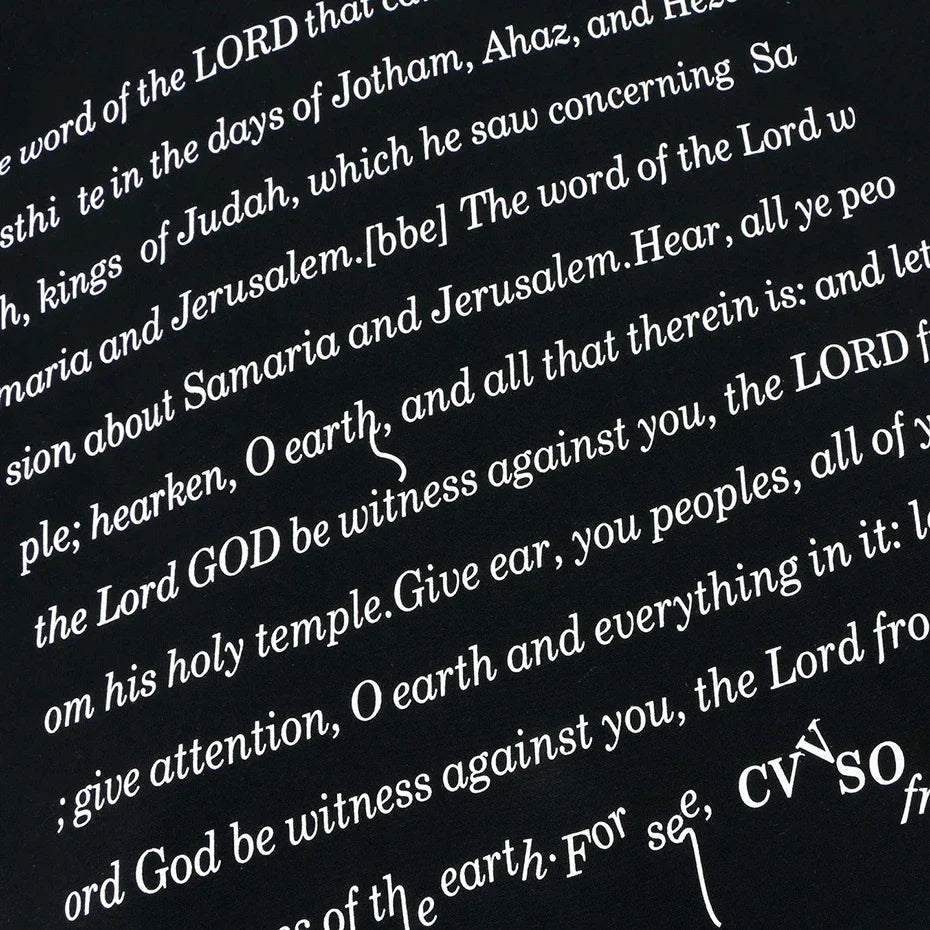 word of the LORD that
sthi te in the days of Jotham, Ahaz, and
h, kings of Judah, which he saw concerning Sa
maria and Jerusalem.[bbe] The word of the Lord w
sion about Samaria and Jerusalem.Hear, all ye peo
ple; hearken, O earth, and all that therein is: and let
the Lord GOD be witness against you, the LORD f
om his holy temple.Give ear, you peoples, all of y
; give attention, O earth and everything in it: l
ord God be witness against you, the Lord fro
of the earth.For see, CVVSO